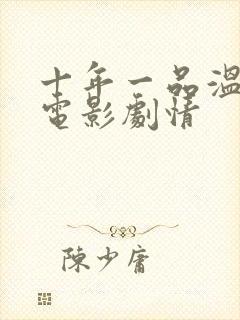 十年一品溫
電影劇情
陳少庸